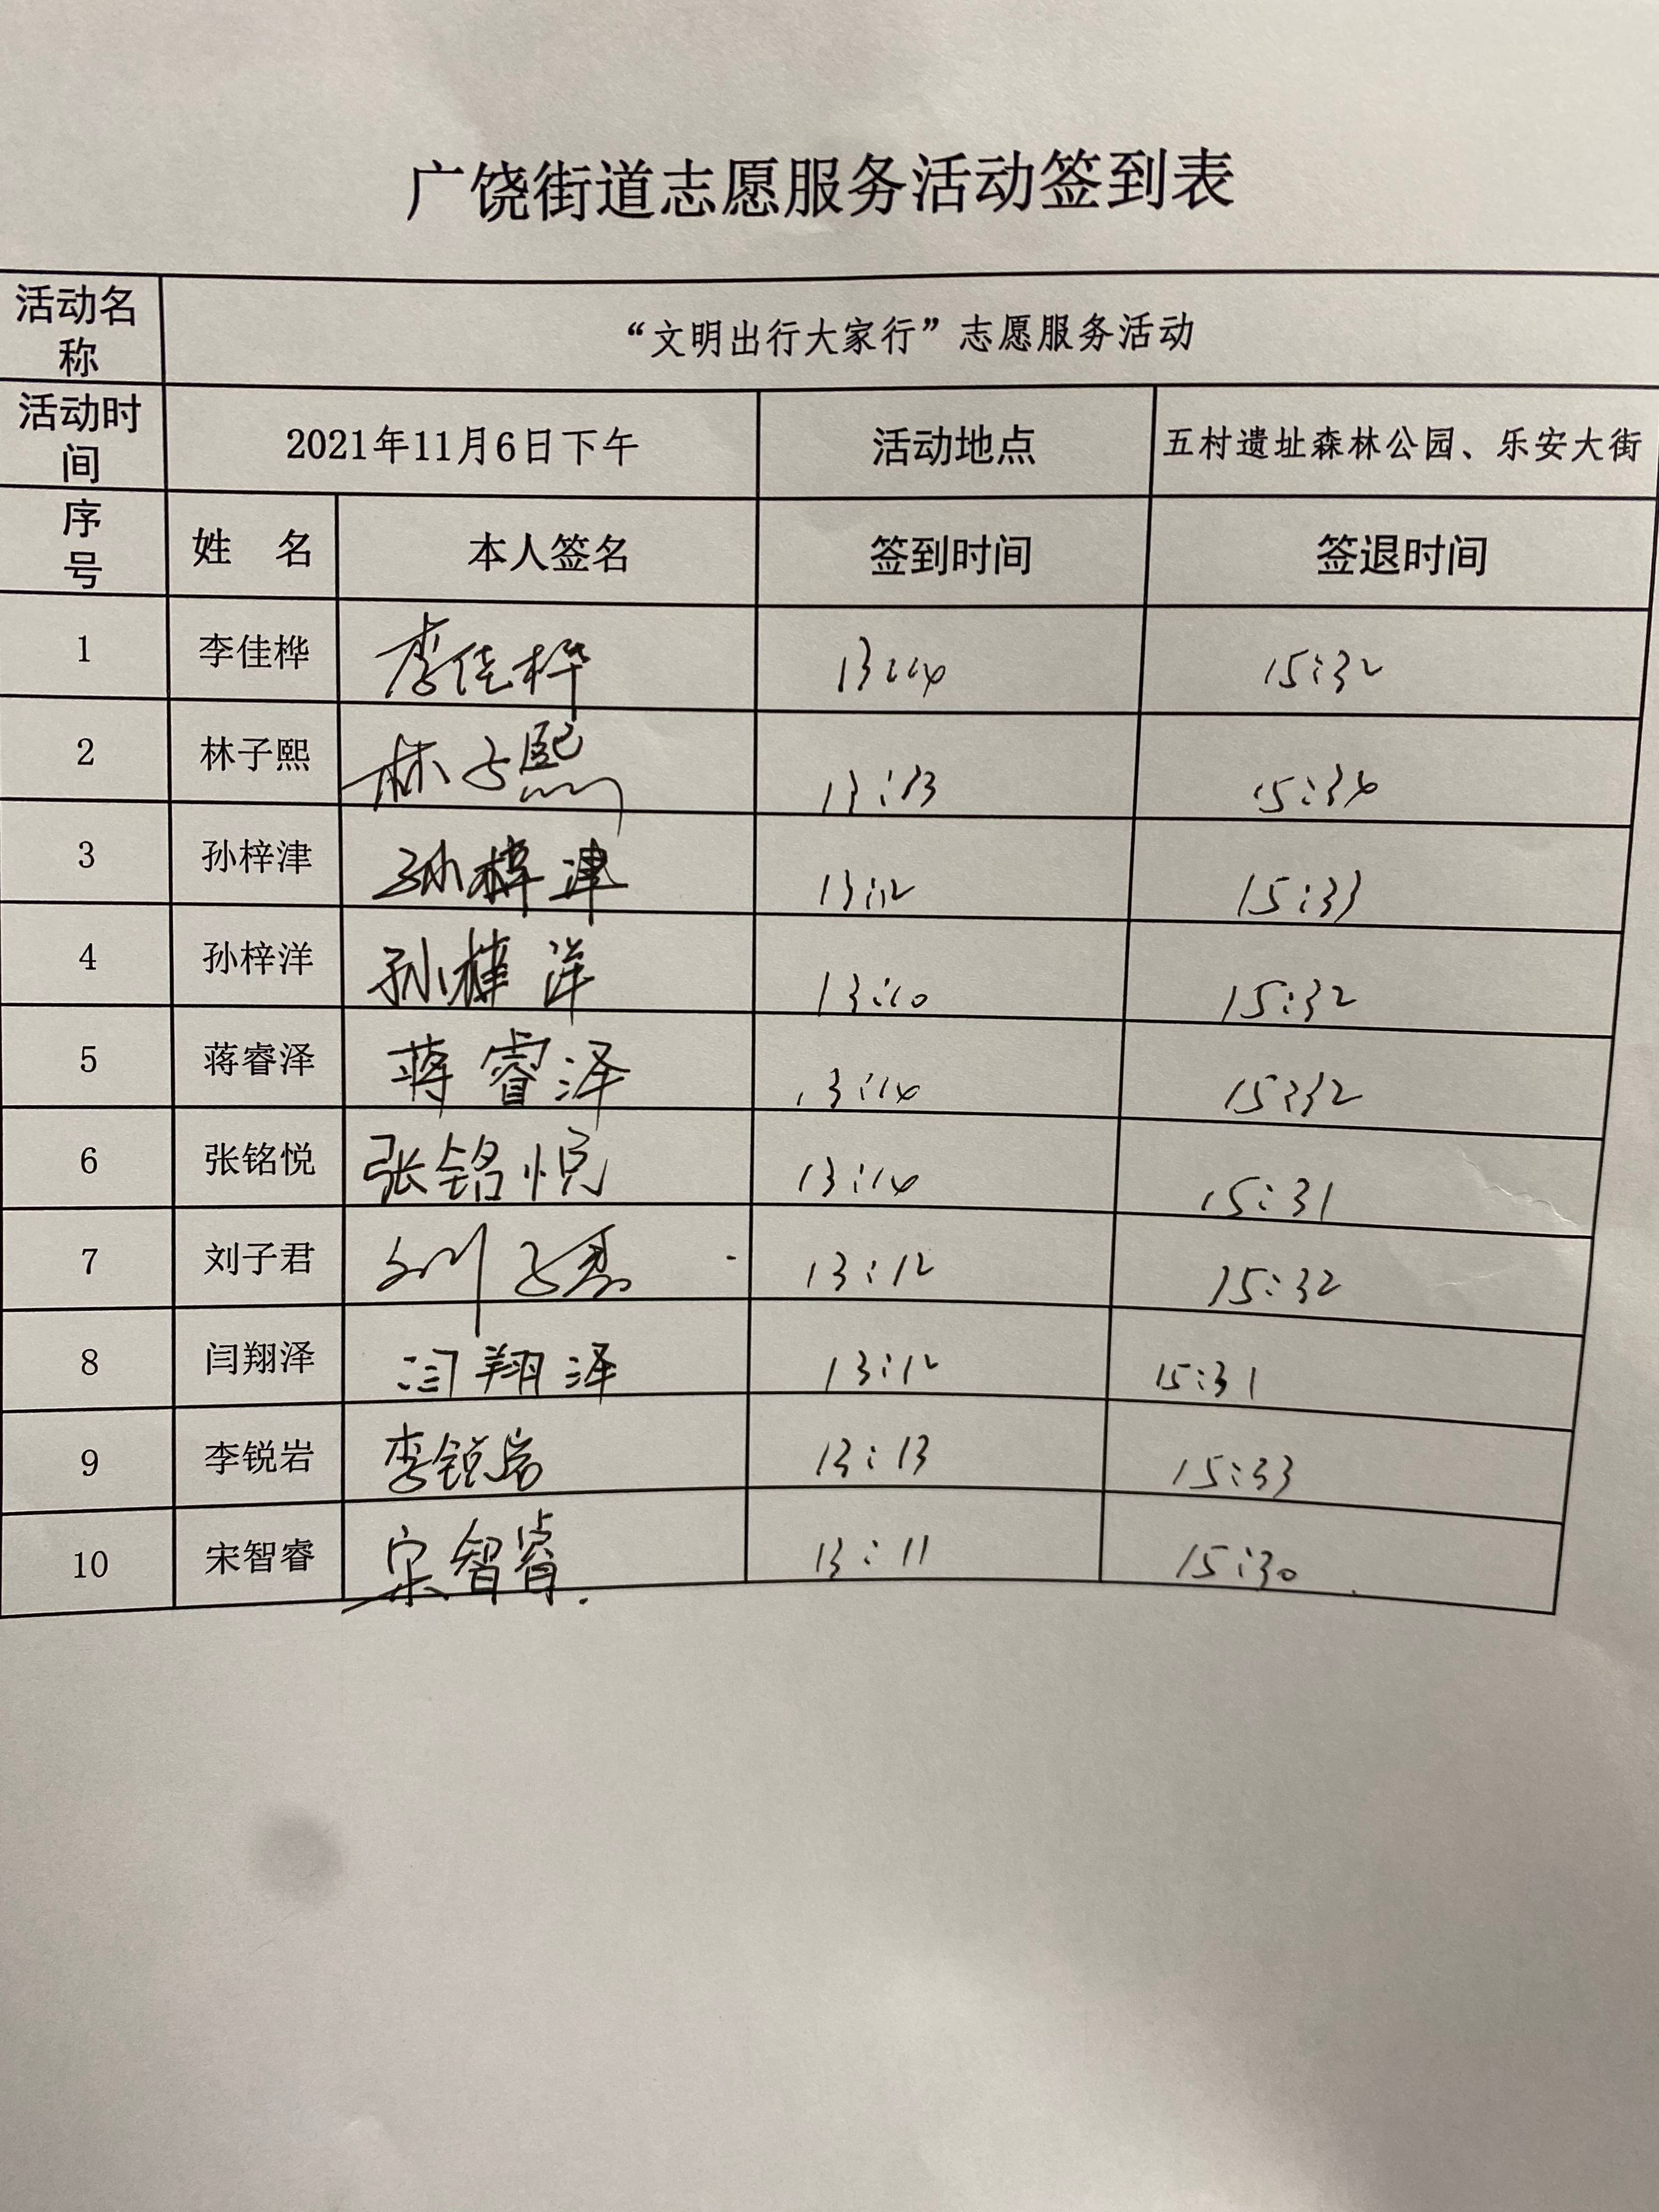 广饶街道志愿服务活动签到表
活动名称 “文明出行大家行”志愿服务活动
活动时间 2021年11月6日下午 活动地点 五村遗址森林公园、乐安大街
序号 姓 名 本人签名 签到时间 签退时间
1 李佳桦 李佳桦 13:14 15:32
2 林子熙 林子熙 13:13 15:34
3 孙梓津 孙梓津 13:12 15:33
4 孙梓洋 孙梓洋 13:10 15:32
5 蒋睿泽 蒋睿泽 13:14 15:32
6 张铭悦 张铭悦 13:14 15:31
7 刘子君 刘子君 13:12 15:32
8 闫翔泽 闫翔泽 13:12 15:31
9 李锐岩 李锐岩 13:13 15:33
10 宋智睿 宋智睿 13:11 15:30